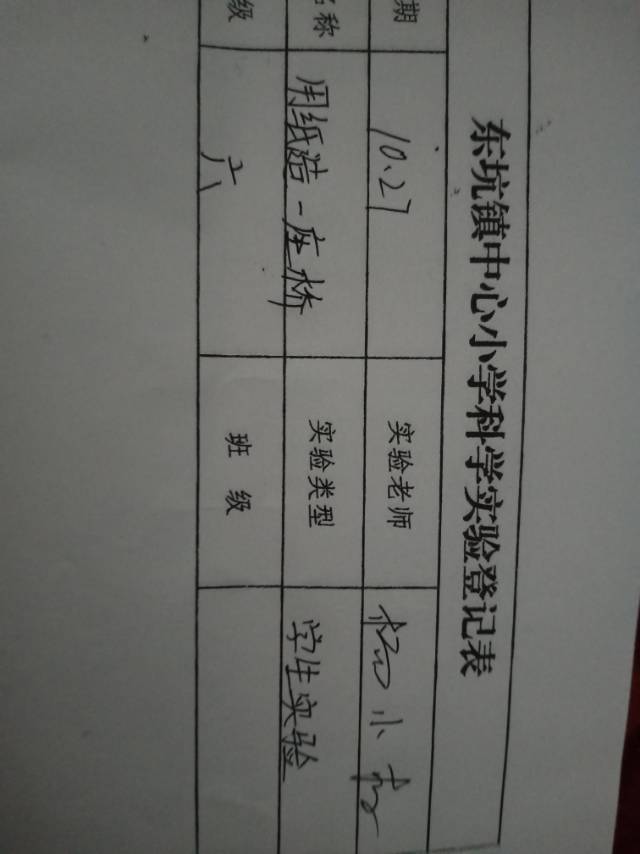 东坑镇中心小学科学实验登记表
期 10.27 实验老师 小
名称 用纸造一座桥 实验类型 学生实验
级 六 班 级